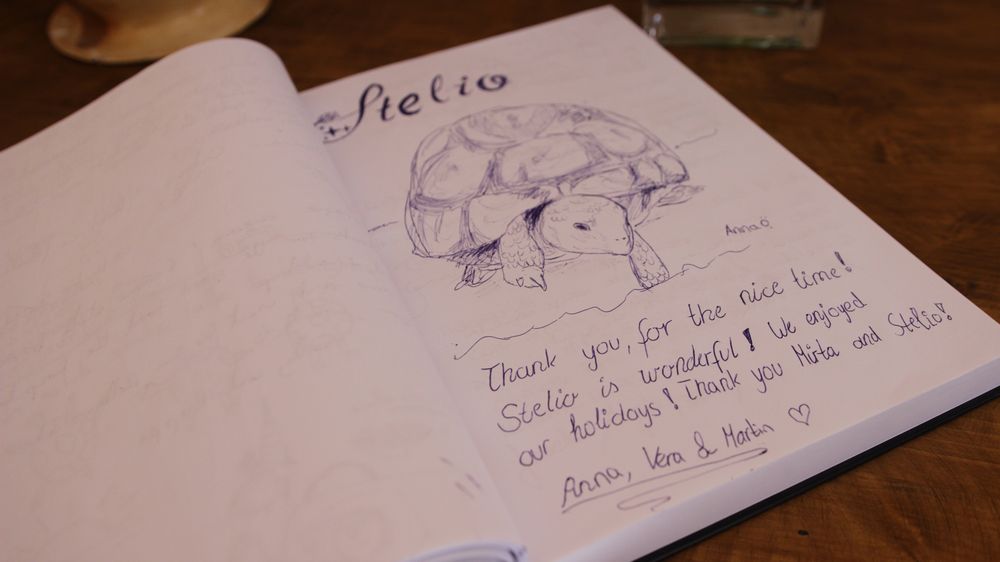 Stelio
Anna
Thank you, for the nice time!
Stelio is wonderful! We enjoyed
our holidays! Thank you Mirta and Stelio!
Anna, Vera & Martin ♡